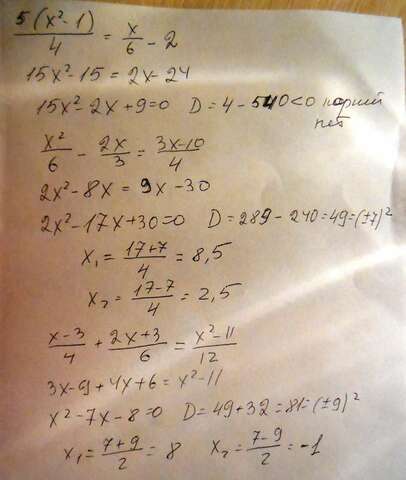 5(x²-1)/4 = x/6 - 2
15x²-15 = 2x-24
15x²-2x+9=0 D=4-540<0 корней
нет
x²/6 - 2x/3 = 3x-10/4
2x²-8x = 9x-30
2x²-17x+30=0 D=289-240=49=(±7)²
x₁ = 17+7/4 = 8,5
x₂ = 17-7/4 = 2,5
x-3/4 + 2x+3/6 = x²-11/12
3x-9+4x+6=x²-11
x²-7x-8=0 D=49+32=81=(±9)²
x₁ = 7+9/2 = 8 x₂ = 7-9/2 = -1